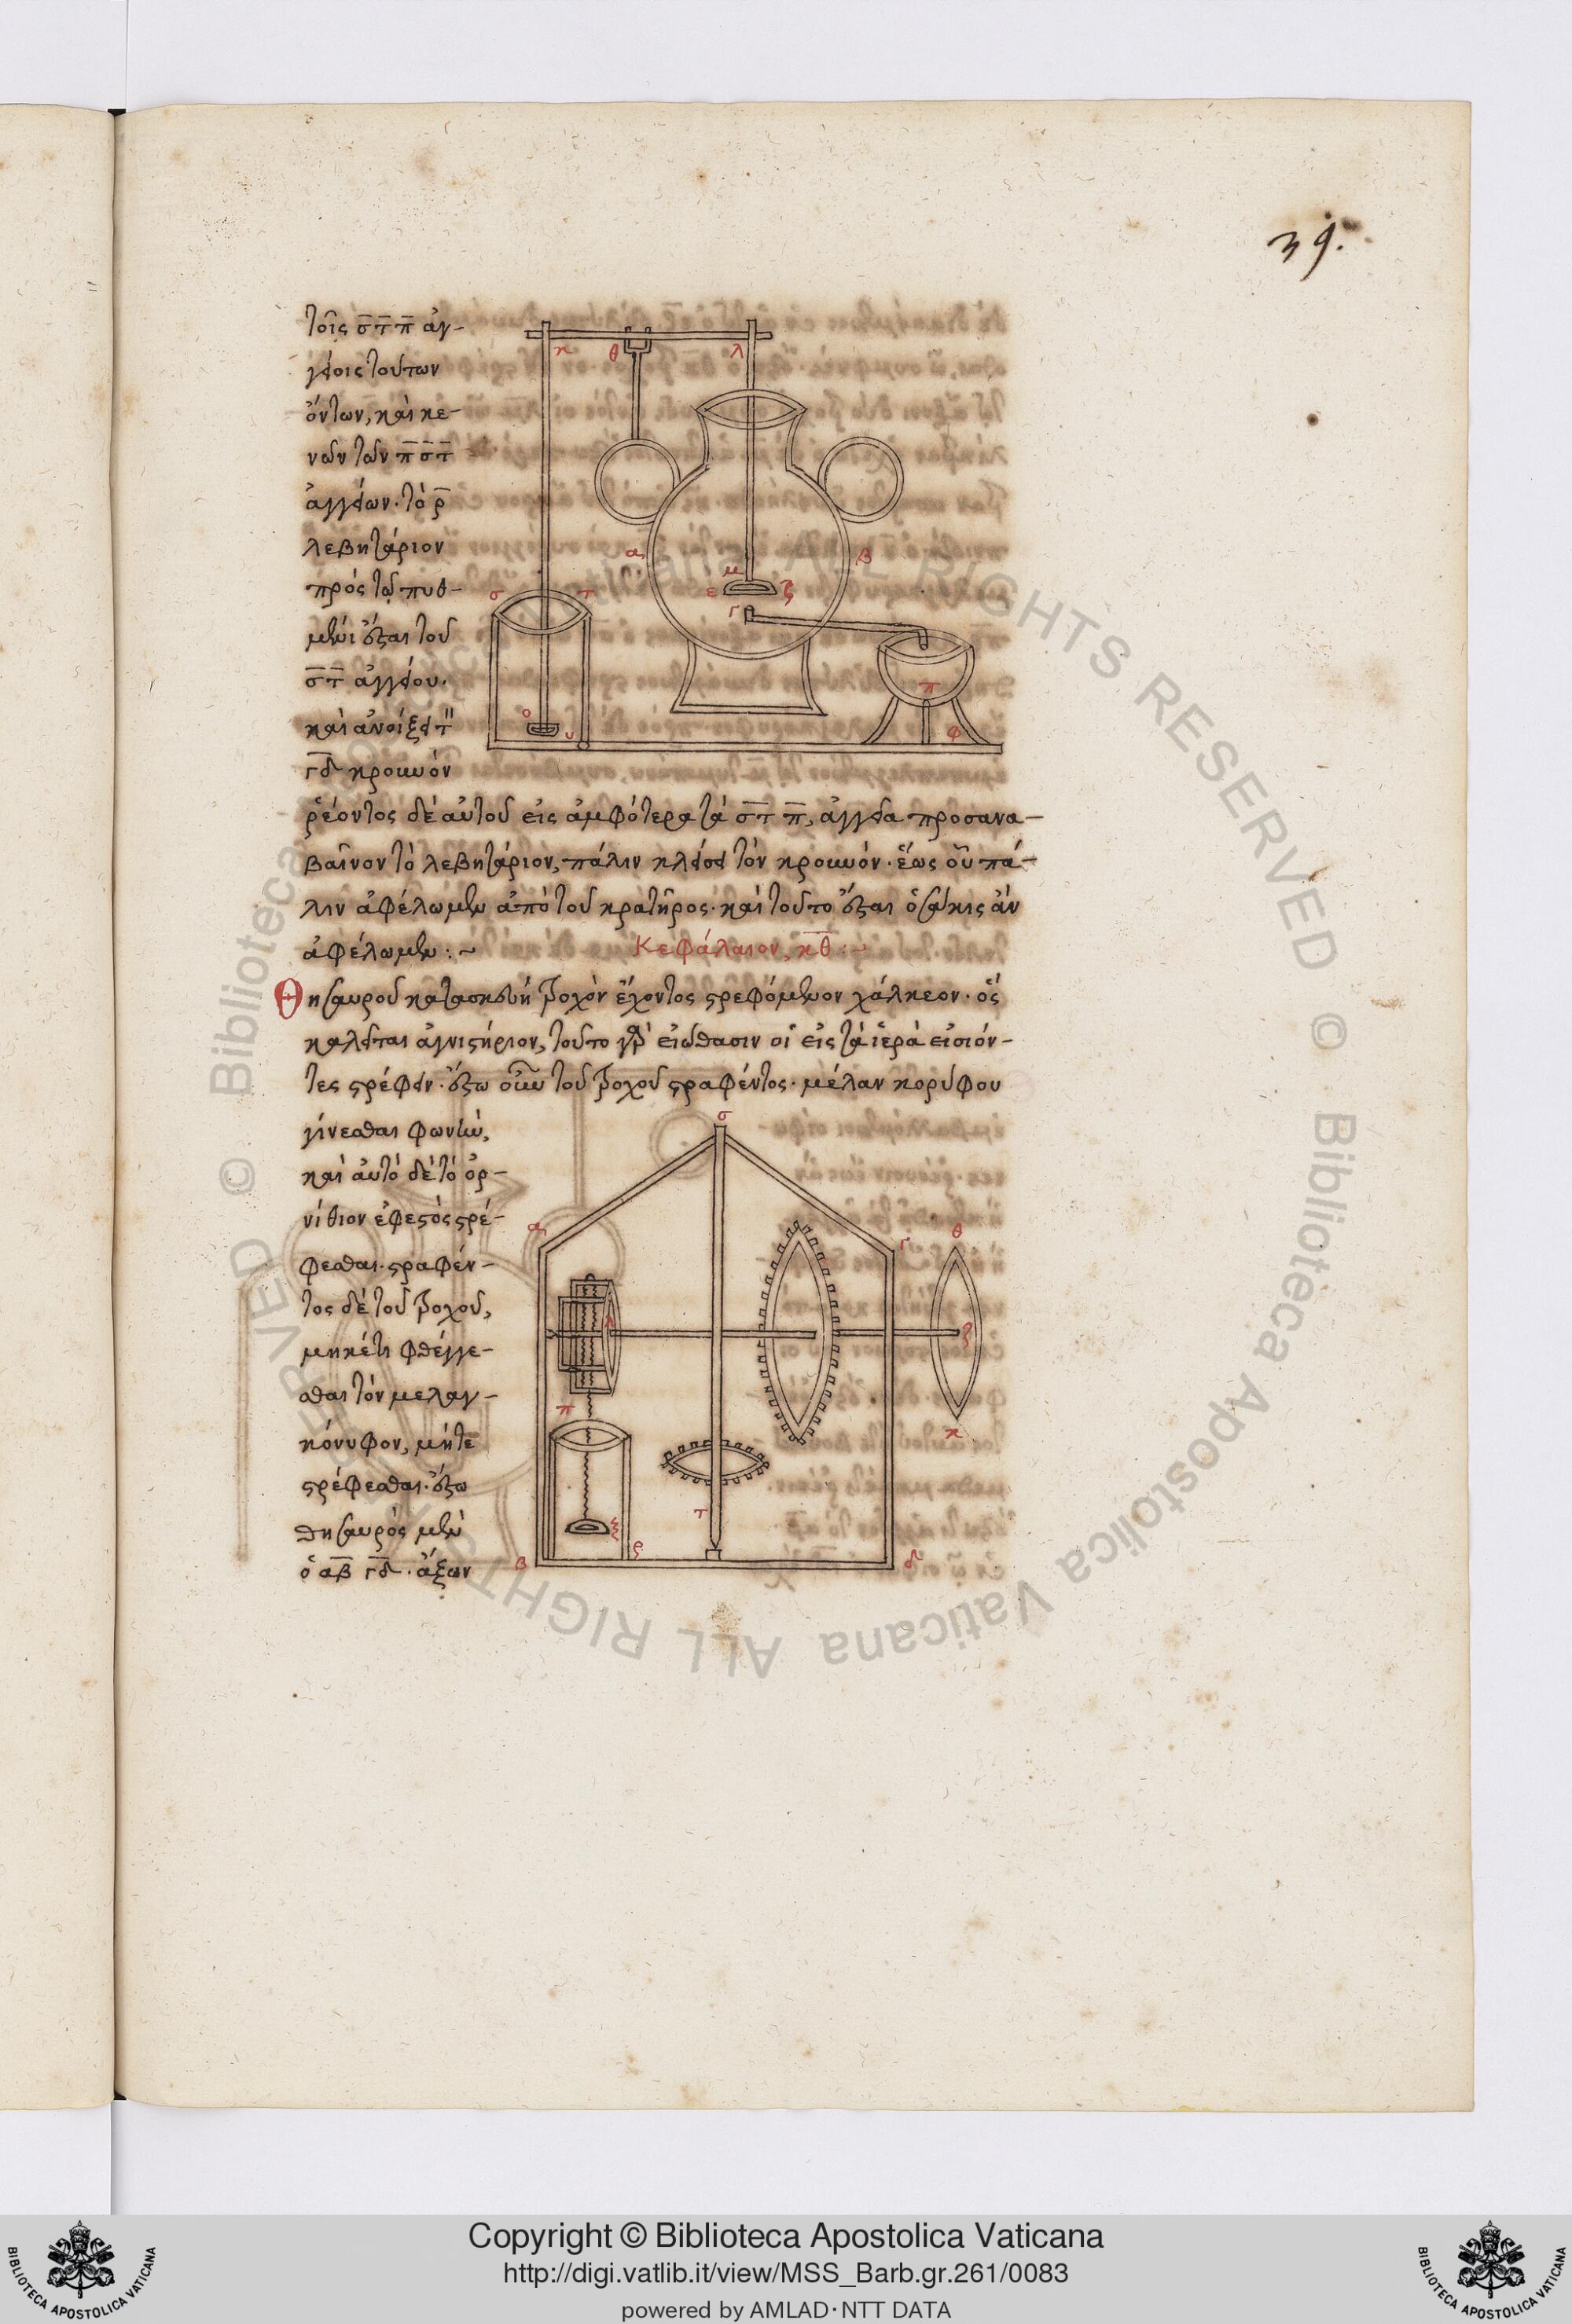 39.
τοῖς σ̅τ̅ π̅ ἀγ-
γείοις τούτων
ὄντων, καὶ κε-
νῶν τῶν π̅ σ̅τ̅
ἀγγείων· τὸ ρ̅
λεβητάριον
πρὸς τῷ πυθ-
μένι ἔσται τοῦ
σ̅τ̅ ἀγγείου·
καὶ ἀνοίξει τὸν
γ̅δ̅ κρουνόν
ῥέοντος δὲ αὐτοῦ εἰς ἀμφότερα τὰ σ̅τ̅ π̅, ἀγγεῖα προσανα-
βαῖνον τὸ λεβητάριον, πάλιν κλείσει τὸν κρουνόν· ἕως οὗ πά-
λιν ἀφέλωμεν ἀπὸ τοῦ κρατῆρος· καὶ τοῦτο ἔσται ὁσάκις ἂν
ἀφέλωμεν :~
Κεφάλαιον, κ̅θ̅ :~
Θησαυροῦ κατασκευὴ τροχὸν ἔχοντος στρεφόμενον χάλκεον· ὃς
καλεῖται ἁγνιστήριον, τοῦτο γὰρ εἰώθασιν οἱ εἰς τὰ ἱερὰ εἰσιόν-
τες στρέφειν· ἔστω οὖν τοῦ τροχοῦ στραφέντος· μέλαν κορύφου
γίνεσθαι φωνὴν,
καὶ αὐτὸ δὲ τὸ ὀρ-
νίθιον ἐφεστὸς στρέ-
φεσθαι· στραφέν-
τος δὲ τοῦ τροχοῦ,
μηκέτι φθέγγε-
σθαι τὸν μελαγ-
κόρυφον, μήτε
στρέφεσθαι· ἔστω
θησαυρὸς μὲν
ὁ α̅β̅ γ̅δ̅· ἄξων
κ θ λ
α β
μ
ε ζ
σ τ γ
π
ο υ φ
σ
α γ θ
λ ζ
π κ
τ
ξ ρ
β δ
Copyright © Biblioteca Apostolica Vaticana
http://digi.vatlib.it/view/MSS_Barb.gr.261/0083
powered by AMLAD·NTT DATA
BIBLIOTECA APOSTOLICA VATICANA
BIBLIOTECA APOSTOLICA VATICANA
© Biblioteca Apostolica Vaticana ALL RIGHTS RESERVED © Biblioteca Apostolica Vaticana ALL RIGHTS RESERVED